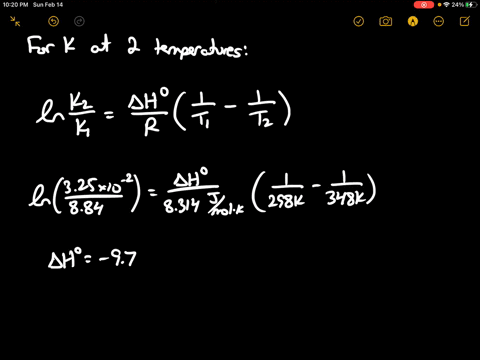 10:20 PM Sun Feb 14
24%
For K at 2 temperatures:
ln K₂/K₁ = ΔH°/R (1/T₁ - 1/T₂)
ln(3.25×10⁻²/8.84) = ΔH°/8.314 J/mol·K (1/298K - 1/348K)
ΔH° = -9.7